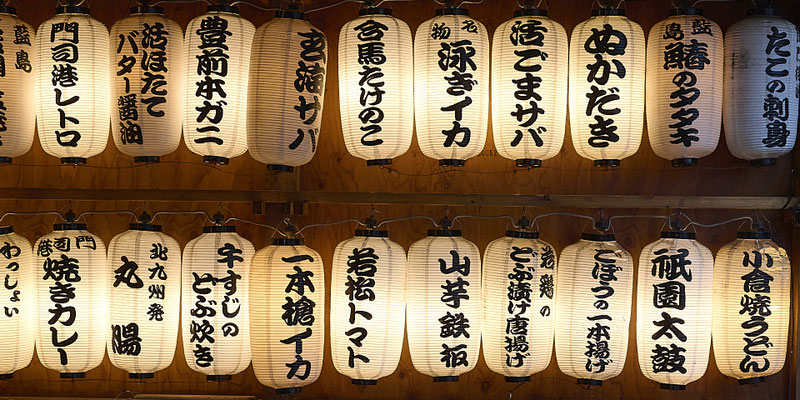 たこの刺身
藍島
鰆のタタキ
ぬかだき
活ごまサバ
名物
泳ぎイカ
合馬たけのこ
玄海サバ
豊前本ガニ
活ほたて
バター醤油
門司港レトロ
藍島
小倉焼うどん
祇園太鼓
ごぼうの一本揚げ
若鶏の
どぶ漬け唐揚げ
山芋鉄板
若松トマト
一本槍イカ
牛すじの
どぶ炊き
北九州発
丸腸
門司港
焼きカレー
わっしょい